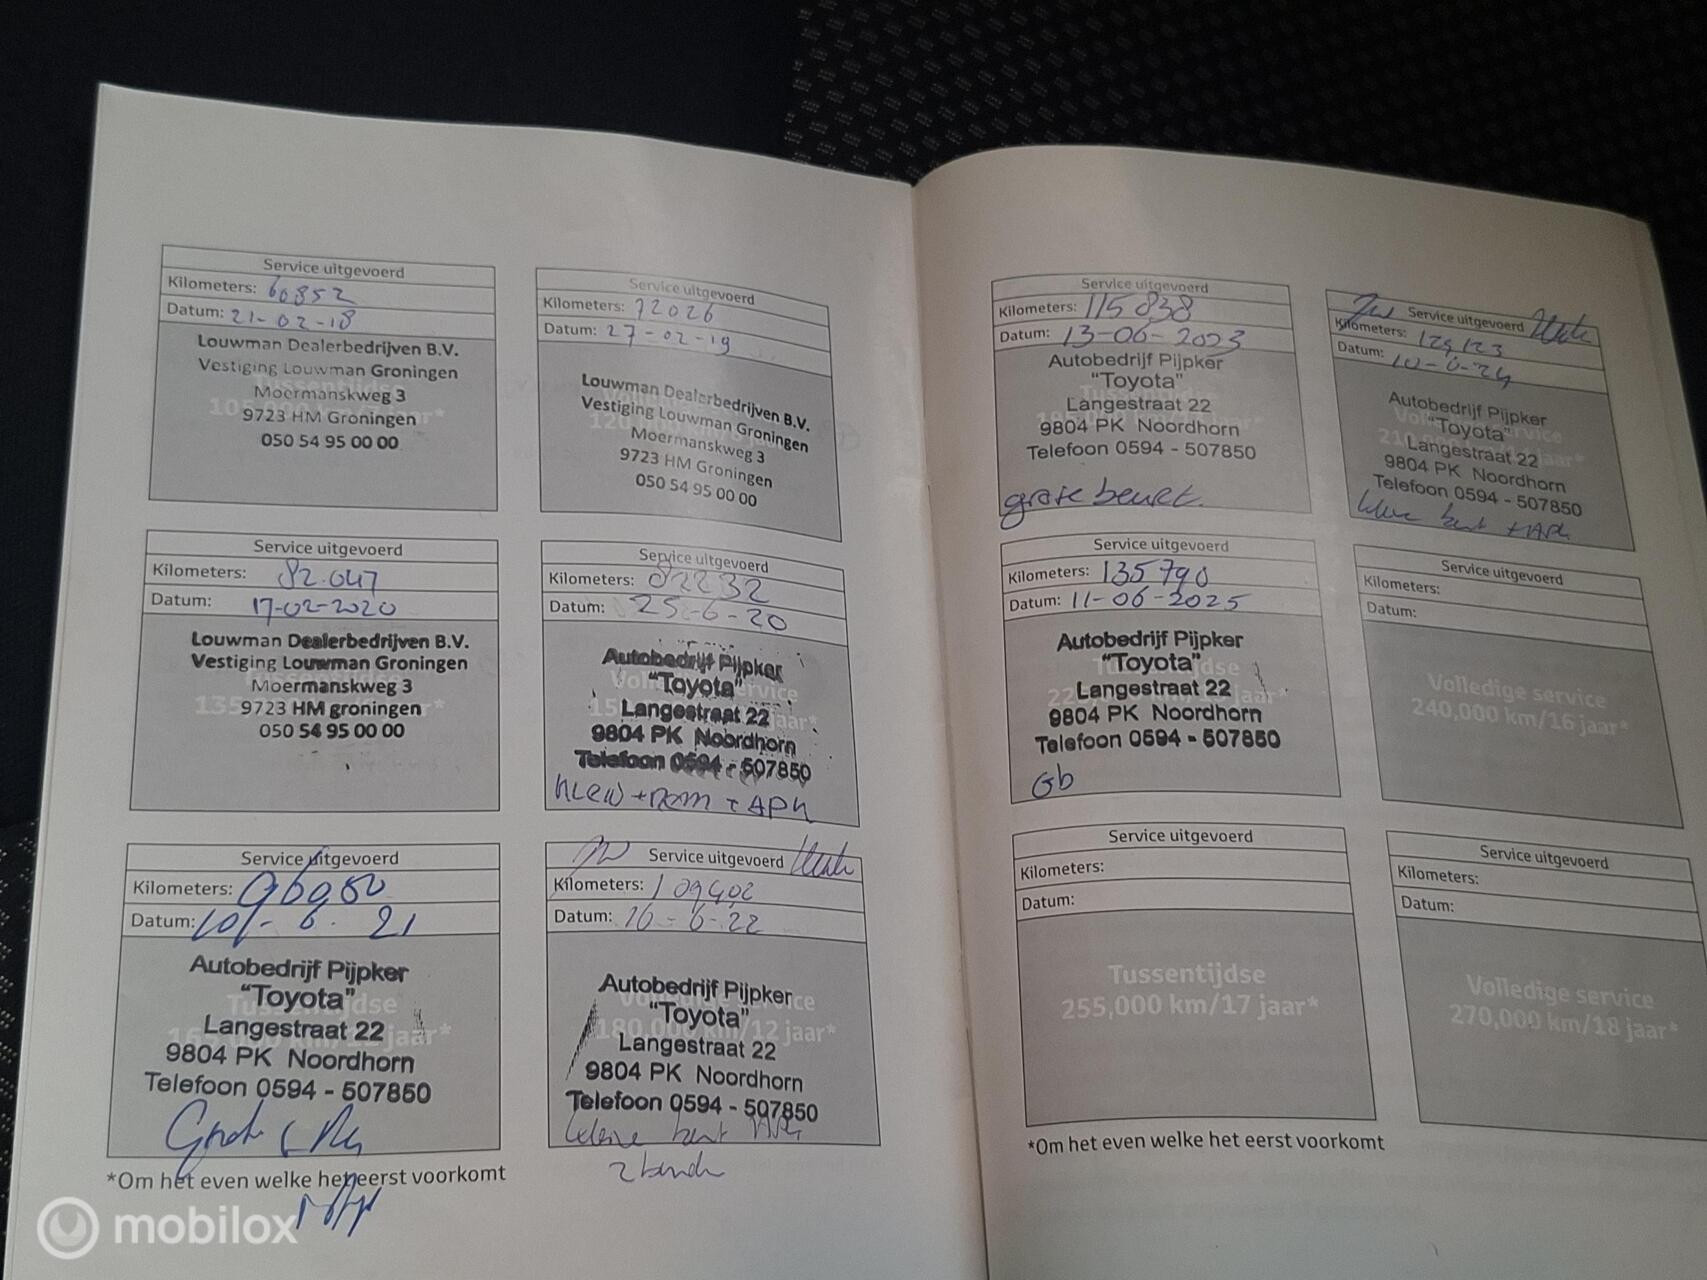 Service uitgevoerd
Kilometers: 60852
Datum: 21-02-18
Louwman Dealerbedrijven B.V.
Vestiging Louwman Groningen
Moermanskweg 3
9723 HM Groningen
050 54 95 00 00
Service uitgevoerd
Kilometers: 72026
Datum: 27-02-19
Louwman Dealerbedrijven B.V.
Vestiging Louwman Groningen
Moermanskweg 3
9723 HM Groningen
050 54 95 00 00
Service uitgevoerd
Kilometers: 82.047
Datum: 17-02-2020
Louwman Dealerbedrijven B.V.
Vestiging Louwman Groningen
Moermanskweg 3
9723 HM groningen
050 54 95 00 00
Service uitgevoerd
Kilometers: 82232
Datum: 25-6-20
Autobedrijf Pijpker
"Toyota"
Langestraat 22
9804 PK Noordhorn
Telefoon 0594 - 507850
+ APK
Service uitgevoerd
Kilometers:
Datum: 10-6-21
Autobedrijf Pijpker
"Toyota"
Langestraat 22
9804 PK Noordhorn
Telefoon 0594 - 507850
Service uitgevoerd
Kilometers: 109402
Datum: 16-6-22
Autobedrijf Pijpker
"Toyota"
180,000 km/12 jaar*
Langestraat 22
9804 PK Noordhorn
Telefoon 0594 - 507850
kleine beurt
*Om het even welke het eerst voorkomt
Service uitgevoerd
Kilometers: 115838
Datum: 13-06-2023
Autobedrijf Pijpker
"Toyota"
Langestraat 22
9804 PK Noordhorn
Telefoon 0594 - 507850
grote beurt.
Service uitgevoerd
Kilometers:
Datum: 10-6-24
Autobedrijf Pijpker
"Toyota"
Langestraat 22
9804 PK Noordhorn
Telefoon 0594 - 507850
kleine beurt + APK
Service uitgevoerd
Kilometers: 135790
Datum: 11-06-2025
Autobedrijf Pijpker
"Toyota"
Langestraat 22
9804 PK Noordhorn
Telefoon 0594 - 507850
Gb
Service uitgevoerd
Kilometers:
Datum:
Volledige service
240,000 km/16 jaar*
Service uitgevoerd
Kilometers:
Datum:
Tussentijdse
255,000 km/17 jaar*
Service uitgevoerd
Kilometers:
Datum:
Volledige service
270,000 km/18 jaar*
*Om het even welke het eerst voorkomt
mobilox